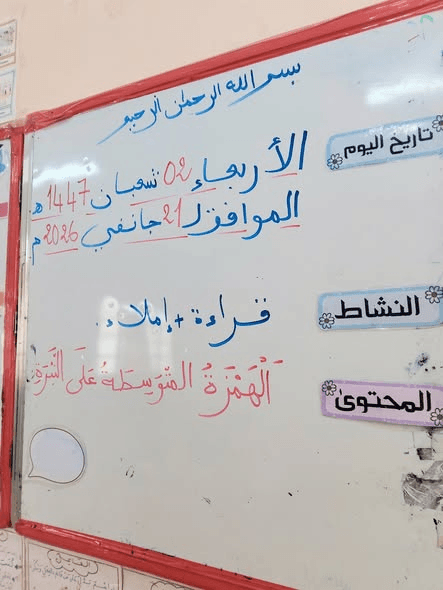 بسم الله الرحمان الرحيم
تاريخ اليوم
الأربعاء 02 شعبان 1447 هـ
الموافق لـ 21 جانفي 2026 م
النشاط
قراءة + إملاء.
المحتوى
الْهَمْزَةُ المتَوَسِطَةُ عَلَى النَّبْرَةِ